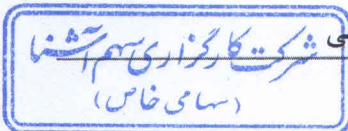 شرکت کارگزاری سهم آشنا
(سهامی خاص)